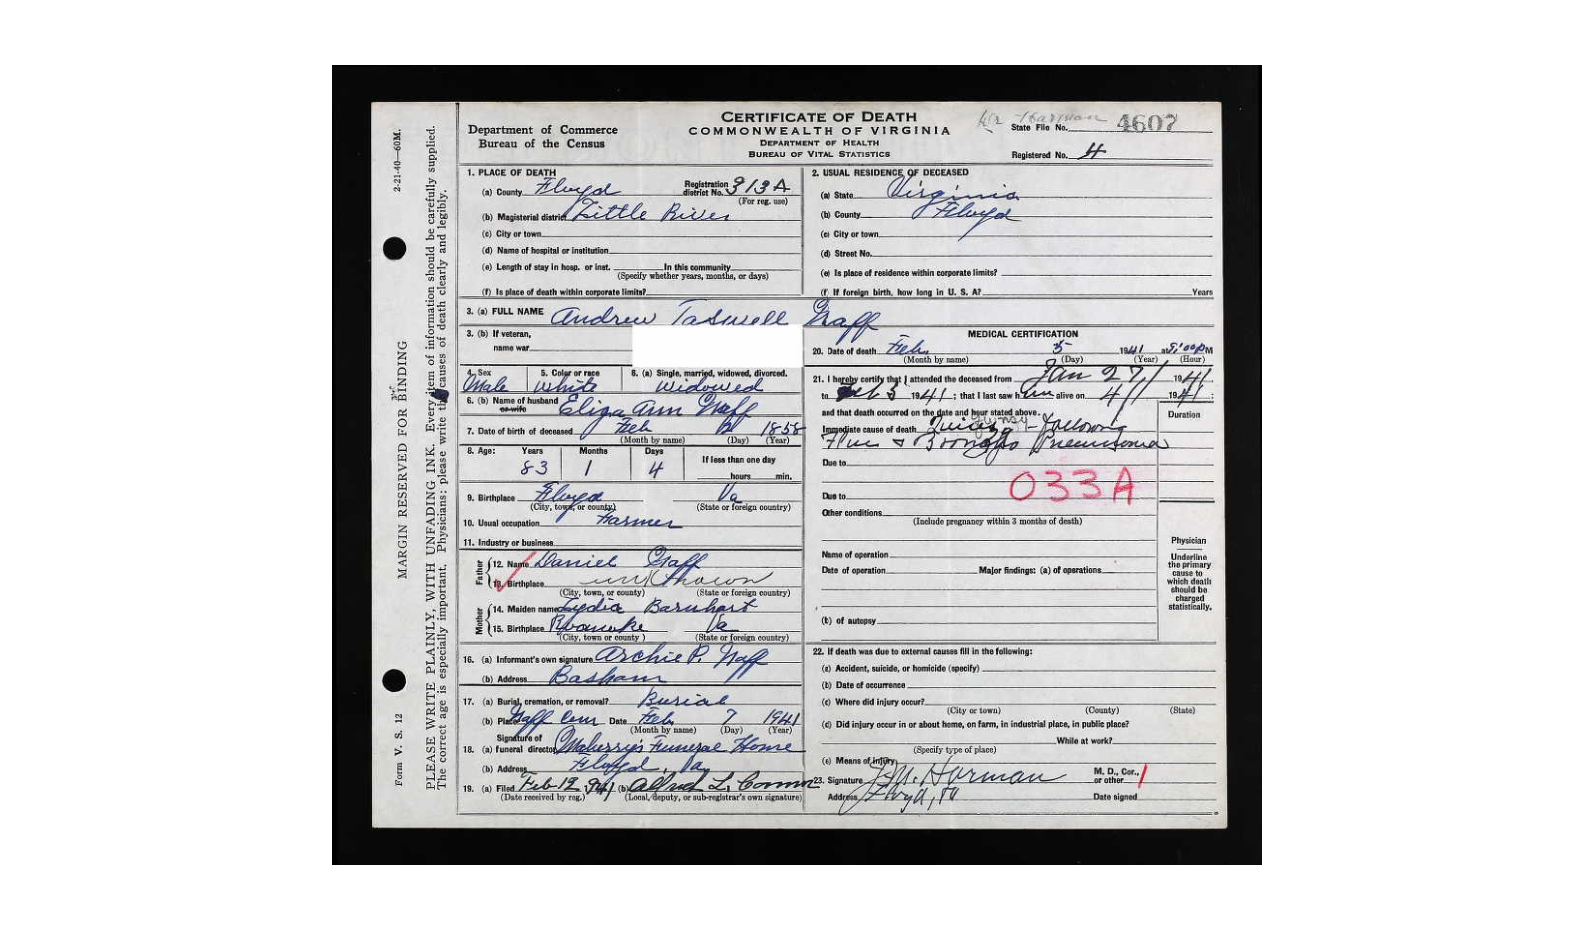 CERTIFICATE OF DEATH
COMMONWEALTH OF VIRGINIA
DEPARTMENT OF HEALTH
BUREAU OF VITAL STATISTICS
Department of Commerce
Bureau of the Census
Harman
State File No. 4607
Registered No. 4
2-21-40—60M.
MARGIN RESERVED FOR BINDING
Form V. S. 12
PLEASE WRITE PLAINLY, WITH UNFADING INK. Every item of information should be carefully supplied.
The correct age is especially important. Physicians: please write the causes of death clearly and legibly.
1. PLACE OF DEATH
(a) County Floyd Registration district No. 313A
(For reg. use)
(b) Magisterial district Little River
(c) City or town
(d) Name of hospital or institution
(e) Length of stay in hosp. or inst. In this community
(Specify whether years, months, or days)
(f) Is place of death within corporate limits?
2. USUAL RESIDENCE OF DECEASED
(a) State Virginia
(b) County Floyd
(c) City or town
(d) Street No.
(e) Is place of residence within corporate limits?
(f) If foreign birth, how long in U. S. A? Years
3. (a) FULL NAME Andrew Taswell Graff
3. (b) If veteran,
name war
4. Sex 5. Color or race 6. (a) Single, married, widowed, divorced.
Male White Widowed
6. (b) Name of husband or wife Eliza Ann Graff
7. Date of birth of deceased Feb 1858
(Month by name) (Day) (Year)
8. Age: Years Months Days If less than one day
83 1 4 hours min.
9. Birthplace Floyd Va
(City, town, or county) (State or foreign country)
10. Usual occupation Farmer
11. Industry or business
Father
12. Name Daniel Graff
13. Birthplace unknown
(City, town, or county) (State or foreign country)
Mother
14. Maiden name Lydia Barnhart
15. Birthplace Roanoke Va
(City, town or county ) (State or foreign country)
16. (a) Informant's own signature Archie P. Graff
(b) Address Basham
17. (a) Burial, cremation, or removal? Burial
(b) Place Graff Cem Date Feb 7 1941
(Month by name) (Day) (Year)
Signature of
18. (a) funeral director Maberry's Funeral Home
(b) Address Floyd, Va
19. (a) Filed Feb-12, 1941 (b) Alfred L. Conner
(Date received by reg.) (Local, deputy, or sub-registrar's own signature)
MEDICAL CERTIFICATION
20. Date of death Feb 5 1941 at 9:00 P M
(Month by name) (Day) (Year) (Hour)
21. I hereby certify that I attended the deceased from Jan 27, 1941
to Feb 5 1941; that I last saw him alive on 4, 1941;
and that death occurred on the date and hour stated above. Duration
Quinsy
Immediate cause of death - following
Flue & Broncho Pneumonia
Due to
033A
Due to
Other conditions
(Include pregnancy within 3 months of death)
Name of operation
Date of operation Major findings: (a) of operations
(b) of autopsy
Physician
Underline
the primary
cause to
which death
should be
charged
statistically.
22. If death was due to external causes fill in the following:
(a) Accident, suicide, or homicide (specify)
(b) Date of occurrence
(c) Where did injury occur?
(City or town) (County) (State)
(d) Did injury occur in or about home, on farm, in industrial place, in public place?
While at work?
(Specify type of place)
(e) Means of injury
23. Signature J. M. Harman M. D., Cor., or other
Address Floyd, Va Date signed